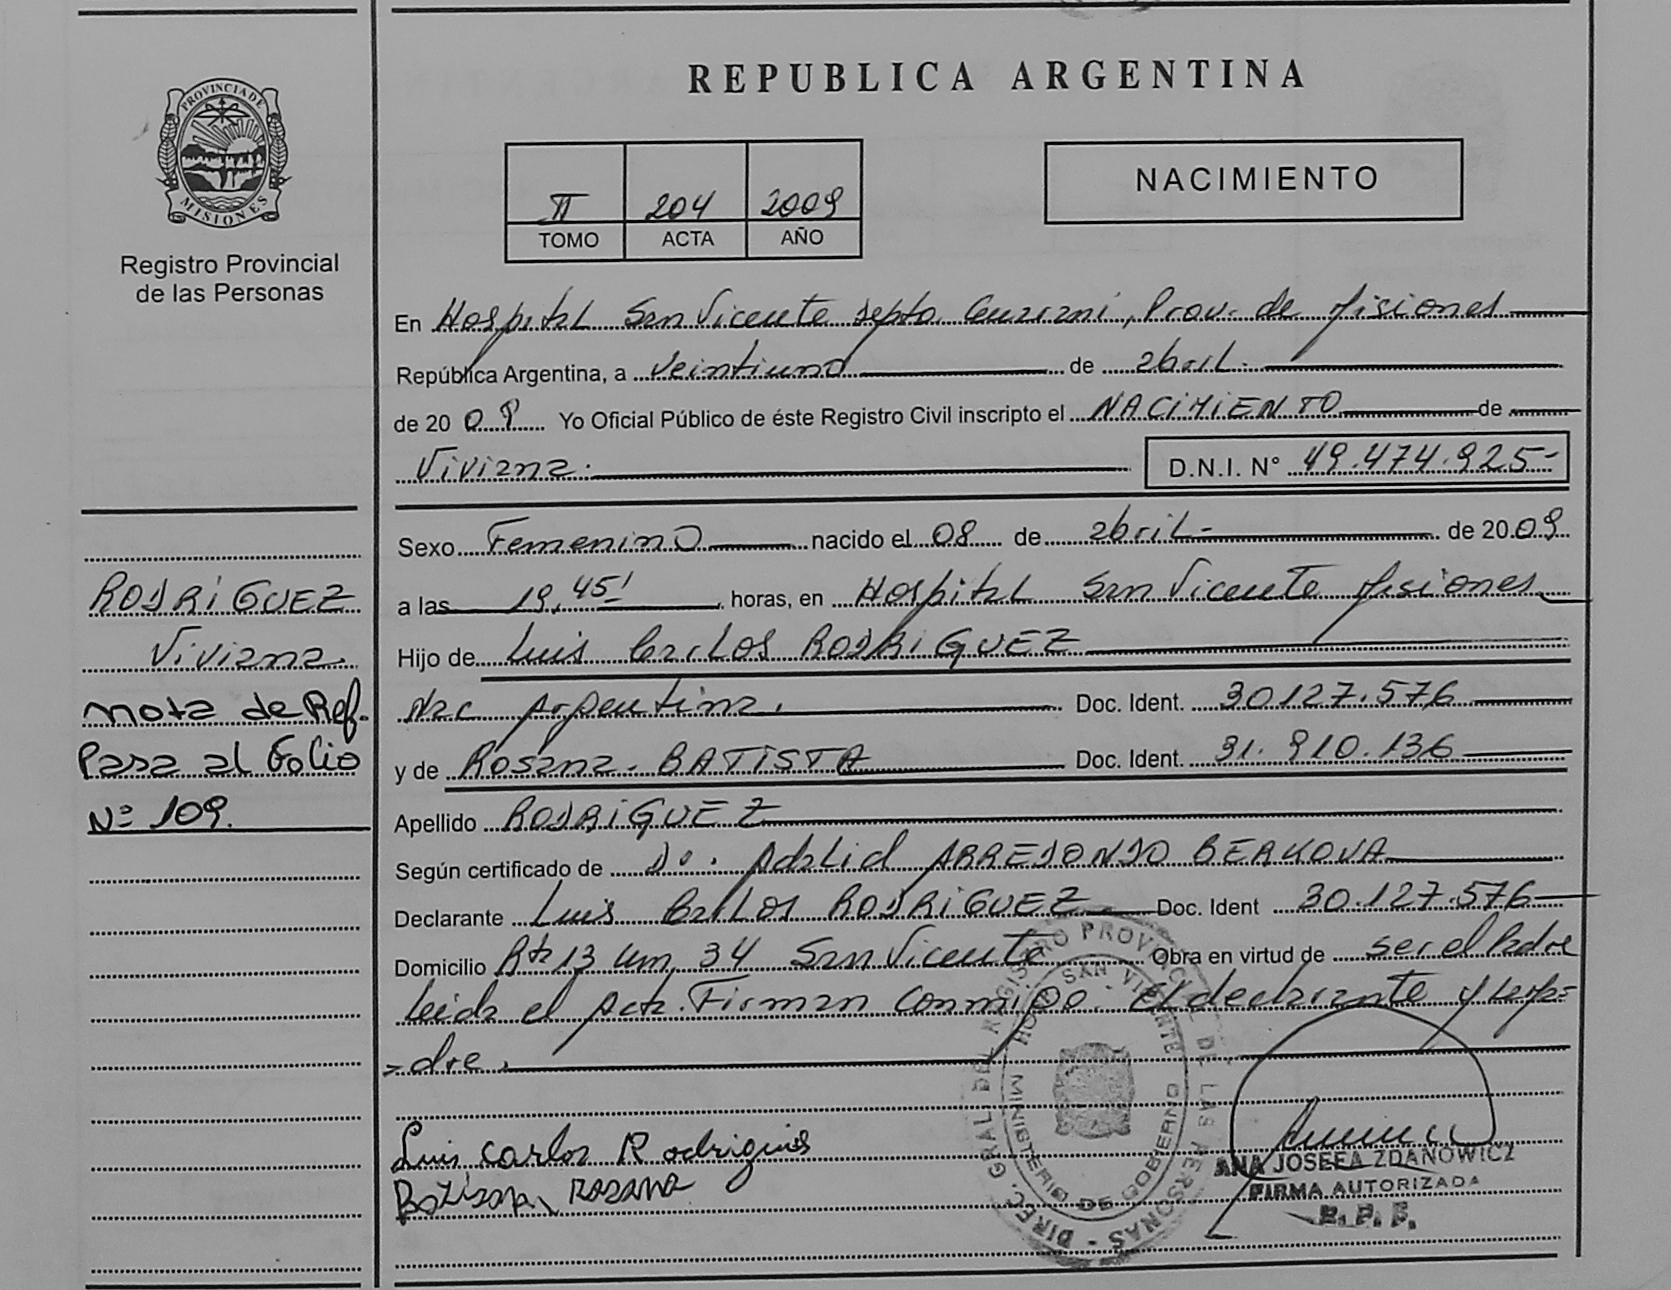 PROVINCIA DE
MISIONES
Registro Provincial
de las Personas
REPUBLICA ARGENTINA
II 204 2009
TOMO ACTA AÑO
NACIMIENTO
En Hospital San Vicente Depto. Guarani, Prov. de Misiones
República Argentina, a veintiuno de abril.
de 20 09 Yo Oficial Público de éste Registro Civil inscripto el NACIMIENTO de
Viviana. D.N.I. N° 49.474.925-
Sexo Femenino nacido el 08 de abril- de 20 09
a las 19,45' horas, en Hospital San Vicente Misiones
Hijo de Luis Carlos RODRIGUEZ
Nac Argentina. Doc. Ident. 30.127.576
y de Rosana. BATISTA Doc. Ident. 31.910.136
Apellido RODRIGUEZ
Según certificado de Dr. Adalid ARREDONDO BERKOVA
Declarante Luis Carlos RODRIGUEZ Doc. Ident 30.127.576
Domicilio Rta 13 Km 34 San Vicente Obra en virtud de ser el Padre
leida el Acta. Firman Conmigo. El declarante y
RODRIGUEZ
Viviana.
Nota de Ref.
Pasa al Folio
N° 109.
Luis Carlos Rodrigues
Batista, Rosana
DIREC. GRAL. DEL REGISTRO PROVINCIAL DE LAS PERSONAS
HOSP. SAN VICENTE
MINISTERIO DE GOBIERNO
ANA JOSEFA ZDANOWICZ
FIRMA AUTORIZADA
R. P. P.